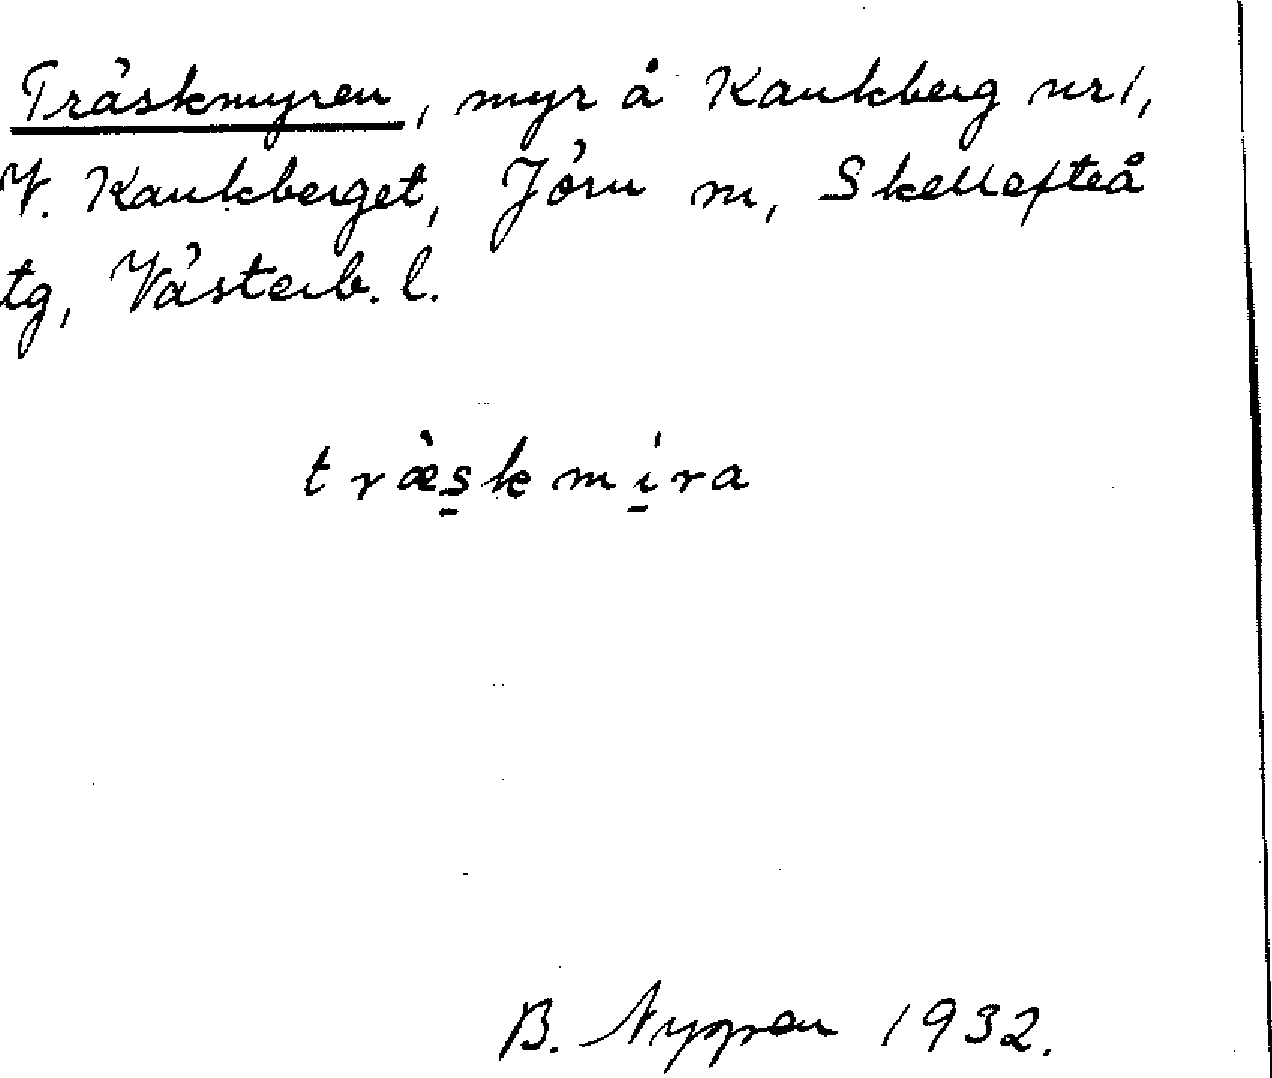 Träskmyren, myr å Kankberg nr 1,
V. Kankberget, Jörn sn, Skellefteå
tg, Västerb. l.
træ̀skmi̍ra
B. Nygren 1932.